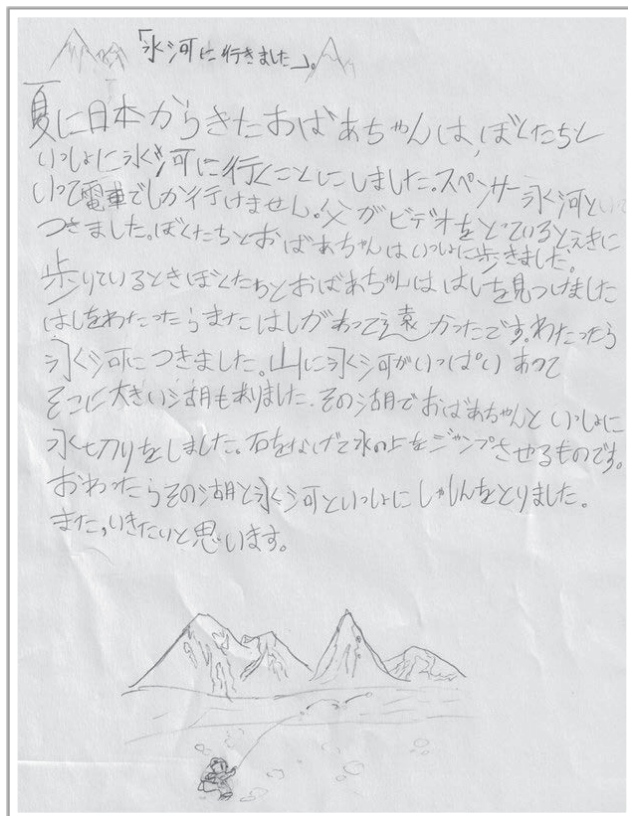 「氷河に行きました」。
夏に日本からきたおばあちゃんは、ぼくたちと
いっしょに氷河に行くことにしました。スペンサー氷河とい
いって電車でしか行けません。父がビデオをとっているとえきに
つきました。ぼくたちとおばあちゃんはいっしょに歩きました。
歩いているときぼくたちとおばあちゃんははしを見つけました
はしをわたったらまたはしがあって遠かったです。わたったら
氷河につきました。山に氷河がいっぱいあって
そこに大きい湖もありました。その湖でおばあちゃんといっしょに
水切りをしました。石をなげて水の上をジャンプさせるものです。
おわったらその湖と氷河といっしょにしゃしんをとりました。
また、いきたいと思います。